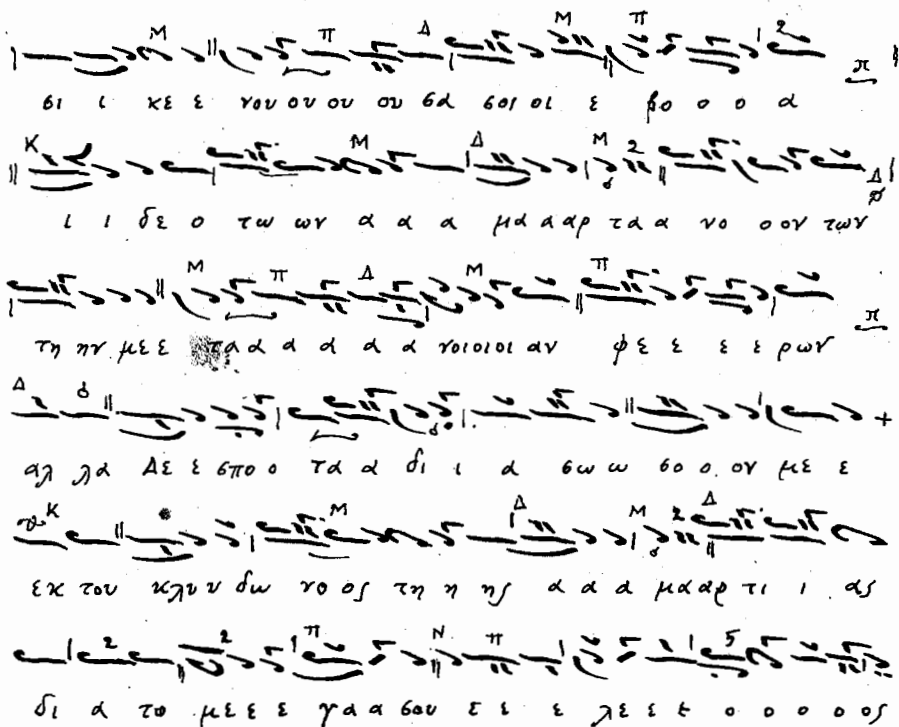 Μ Π Δ Μ Π 2 π
σι ι κε ε νου ου ου ου σα σοι οι ε βο ο ο α
Κ Μ Δ Μ 2 Δ
ι ι δε ο τω ων α α α μα α αρ τα α νο ο ον των
Μ Π Δ Μ Π π
τη ην με ε τα α α α α α νοι οι οι αν φε ε ε ε ρων
Δ
αλ λα Δε ε σπο ο τα α δι ι α σω ω σο ο ον με ε
Κ Μ Δ Μ 2 Δ
εκ του κλυ υ δω νο ος τη η ης α α α μα αρ τι ι ας
2 2 Π Ν Π 5
δι α το με ε ε γα α σου ε ε ε λε ε ε ο ο ο ο ος